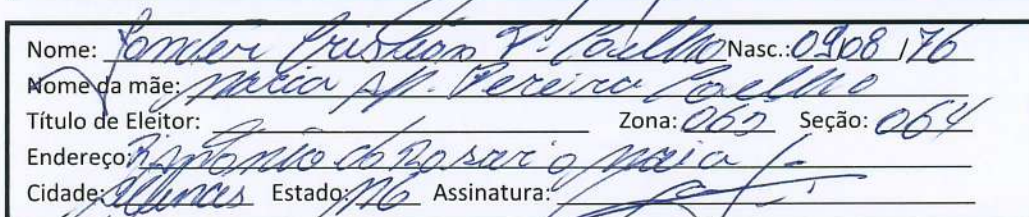 Nome: Vander Cristian P. Coelho Nasc.: 09/08/76
Nome da mãe: Maria Ap. Pereira Coelho
Título de Eleitor: Zona: 065 Seção: 064
Endereço: R Antônio do Rosario Maia
Cidade: Estado: MG Assinatura: